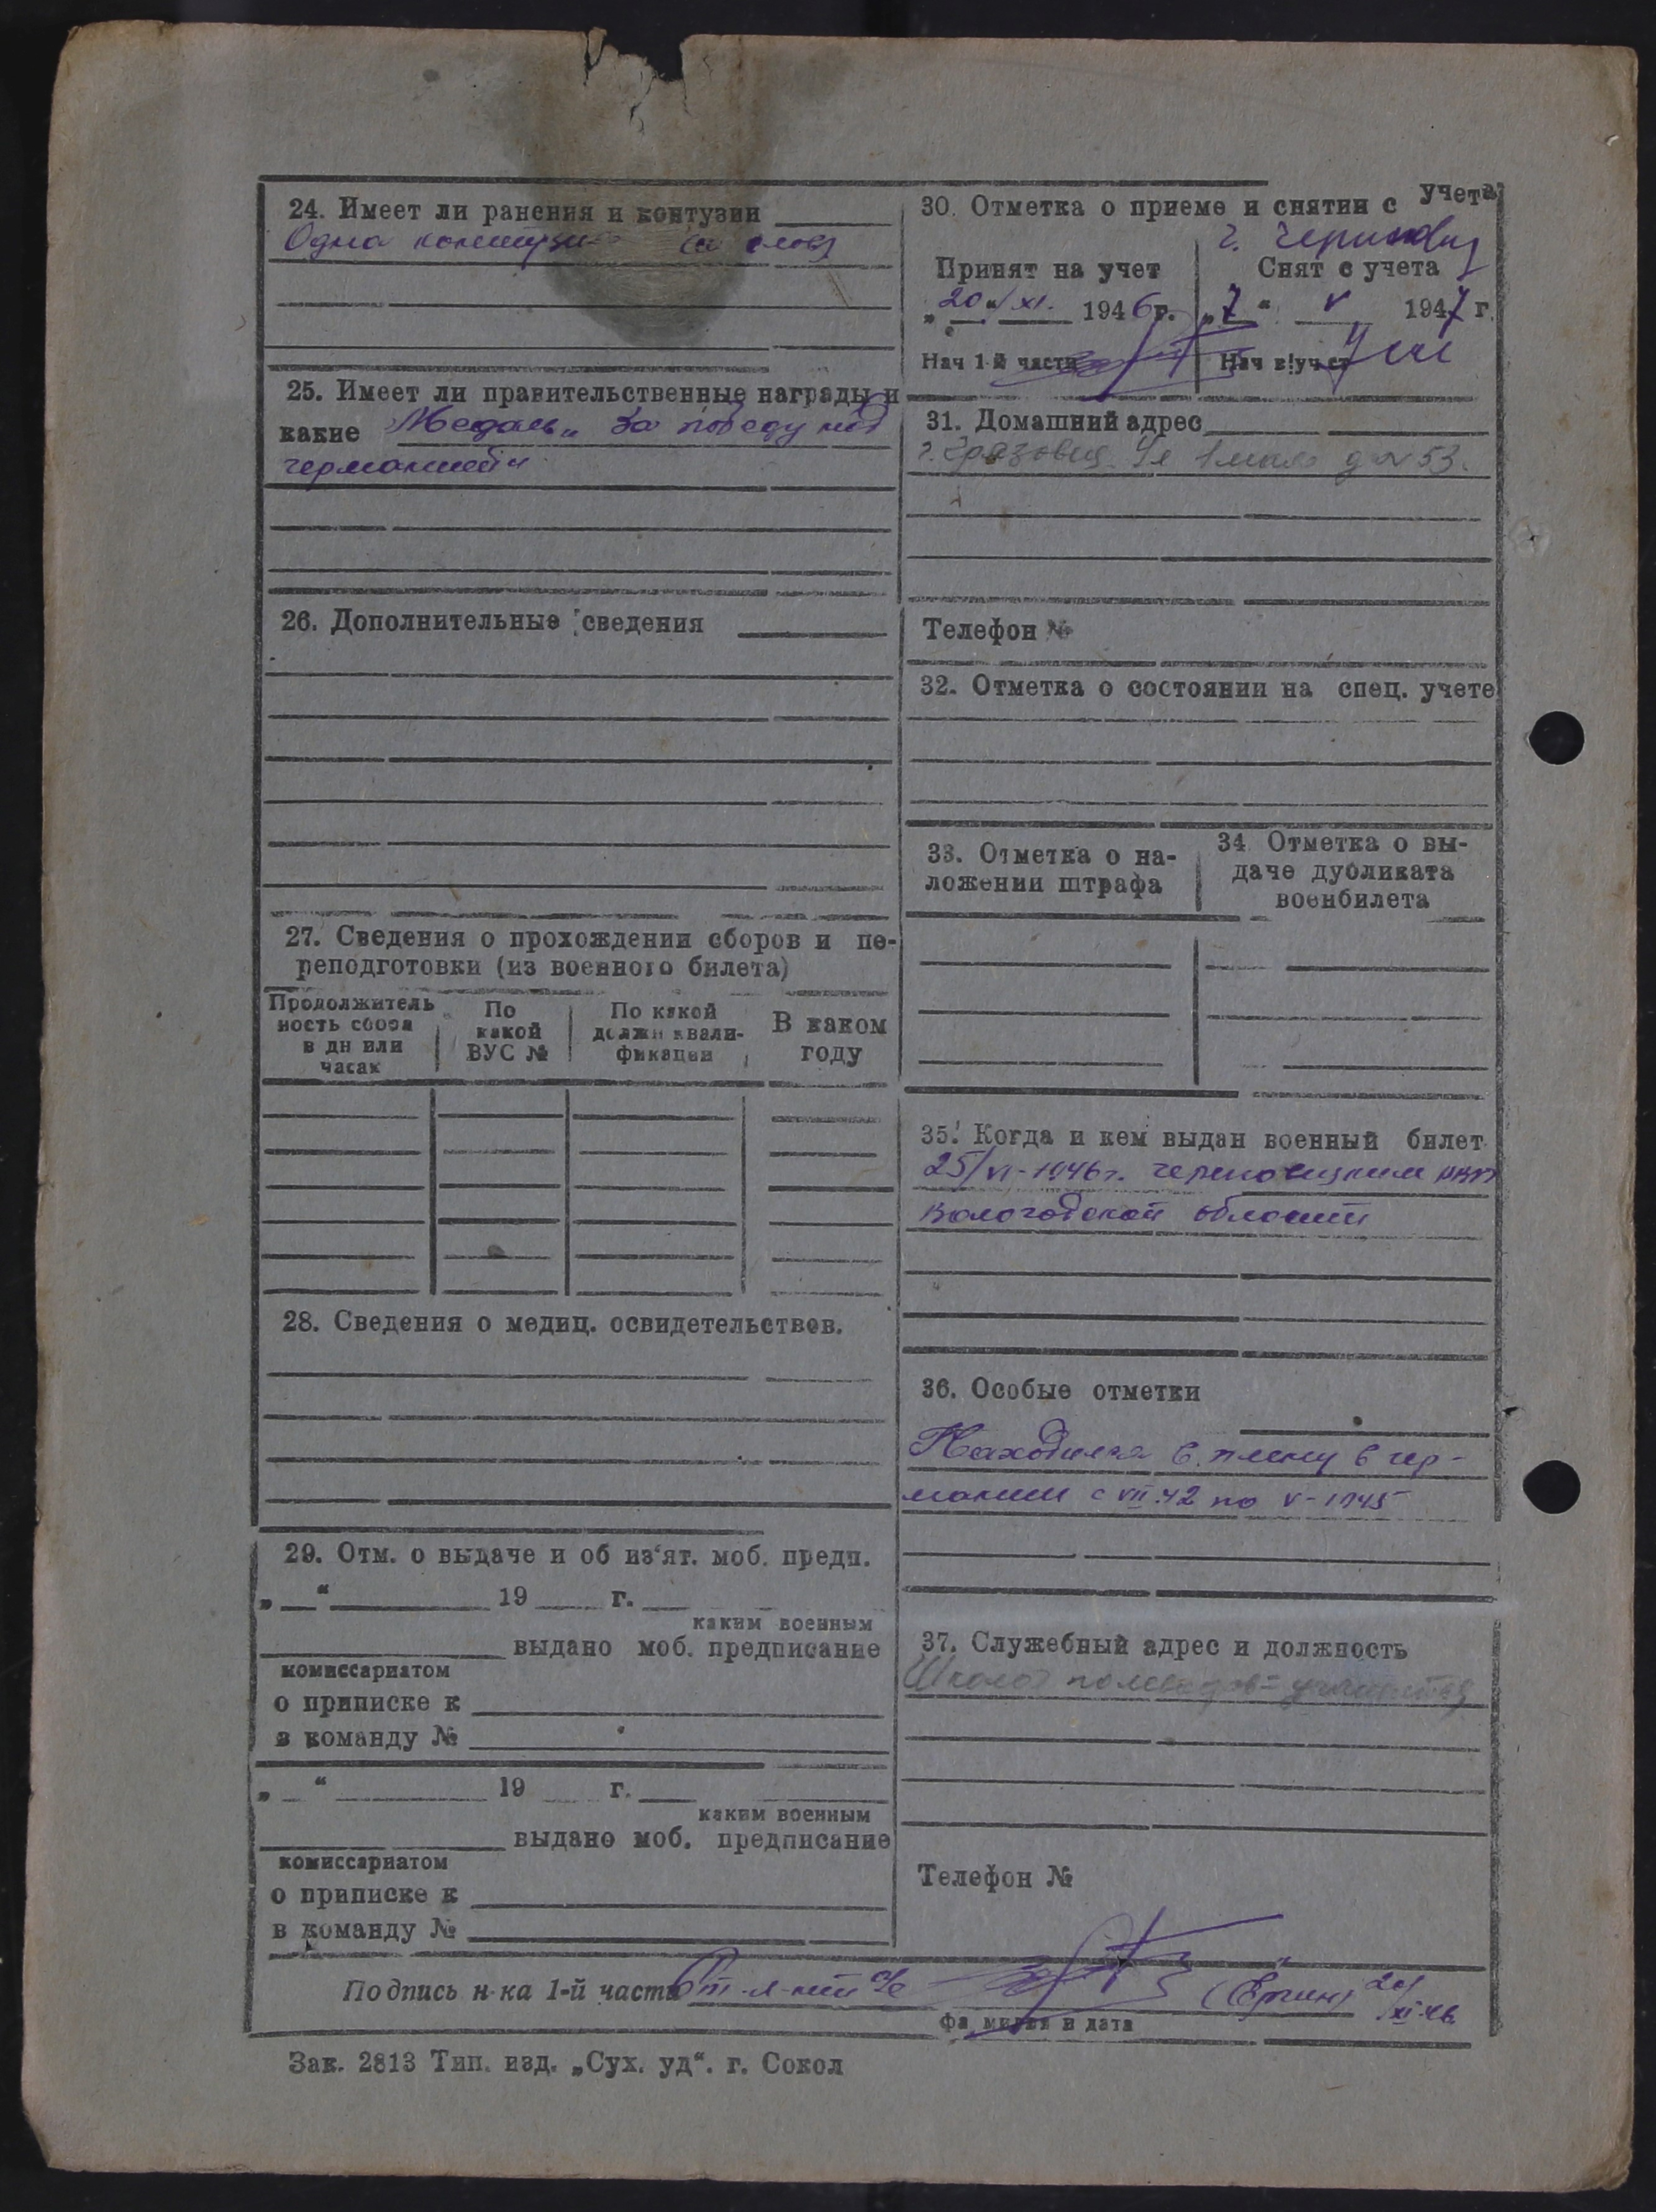 24. Имеет ли ранения и контузии
Одна контузия
25. Имеет ли правительственные награды и
какие Медаль „За победу над
германией"
26. Дополнительные сведения
27. Сведения о прохождении сборов и пе-
реподготовки (из военного билета)
Продолжитель
ность сбора
в дн или
часах
По
какой
ВУС №
По какой
должн квали-
фикации
В каком
году
28. Сведения о медиц. освидетельствов.
29. Отм. о выдаче и об из‘ят. моб. предп.
„ “ 19 г.
каким военным
выдано моб. предписание
комиссариатом
о приписке к
в команду №
„ “ 19 г.
каким военным
выдано моб. предписание
комиссариатом
о приписке к
в команду №
30. Отметка о приеме и снятии с учета
г. Череповец
Принят на учет
„20“ XI. 1946 г.
Нач 1-й части
Снят с учета
„7“ V 1947 г.
Нач в/уч ст
31. Домашний адрес
г. Грязовец Ул 1 мая д № 53.
Телефон №
32. Отметка о состоянии на спец. учете
33. Отметка о на-
ложении штрафа
34 Отметка о вы-
даче дубликата
военбилета
35. Когда и кем выдан военный билет
25/VI-1946 г. череповецким РВК
Вологодской области
36. Особые отметки
Находился в плену в гер-
мании с VII.42 по V-1945
37. Служебный адрес и должность
Школа полеводов
Телефон №
Подпись н-ка 1-й части Ст. л-нт а/с (Ёргин) 20/XI-46
Фамилия и дата
Зак. 2813 Тип. изд. „Сух. уд“. г. Сокол